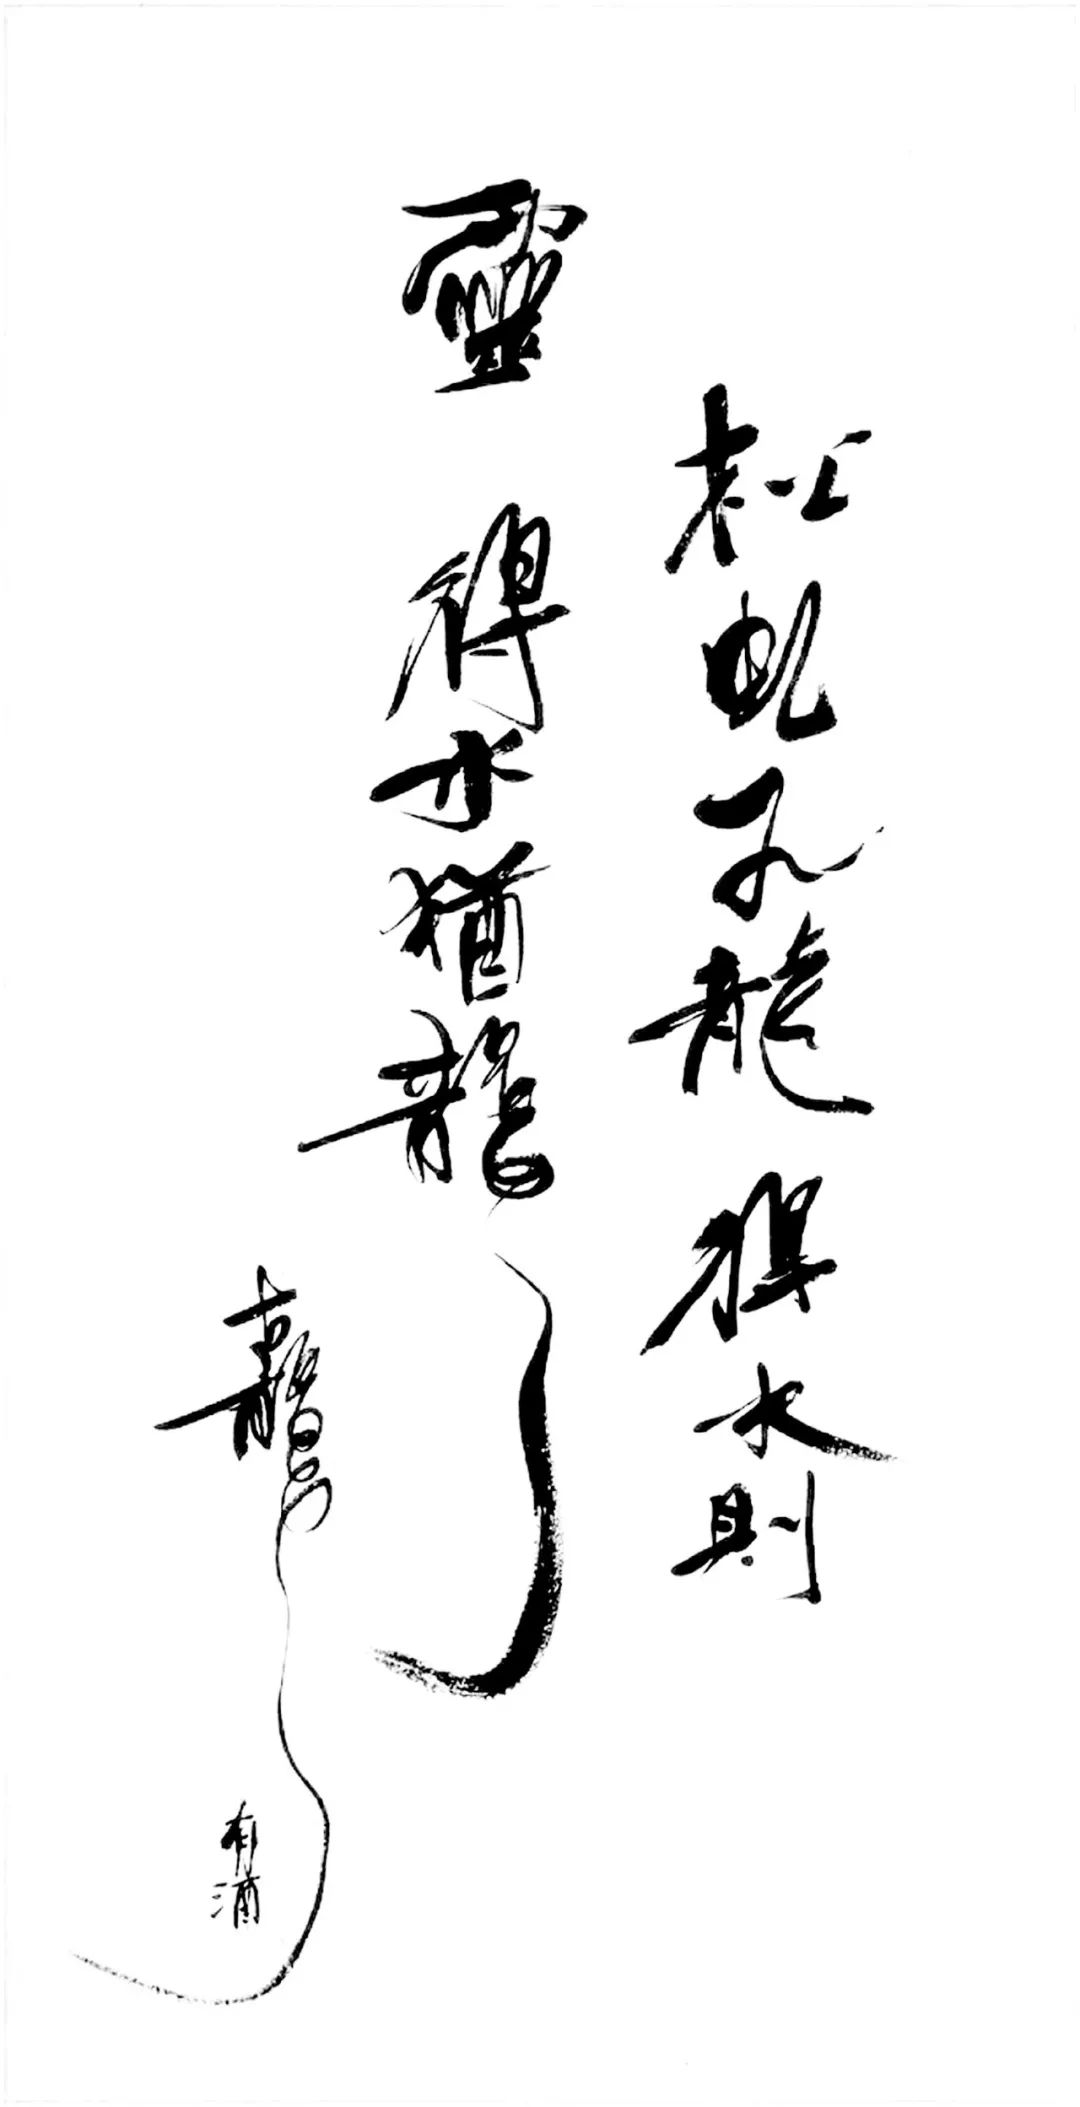 松虬龍得水則
靈得水猶龍
有酒